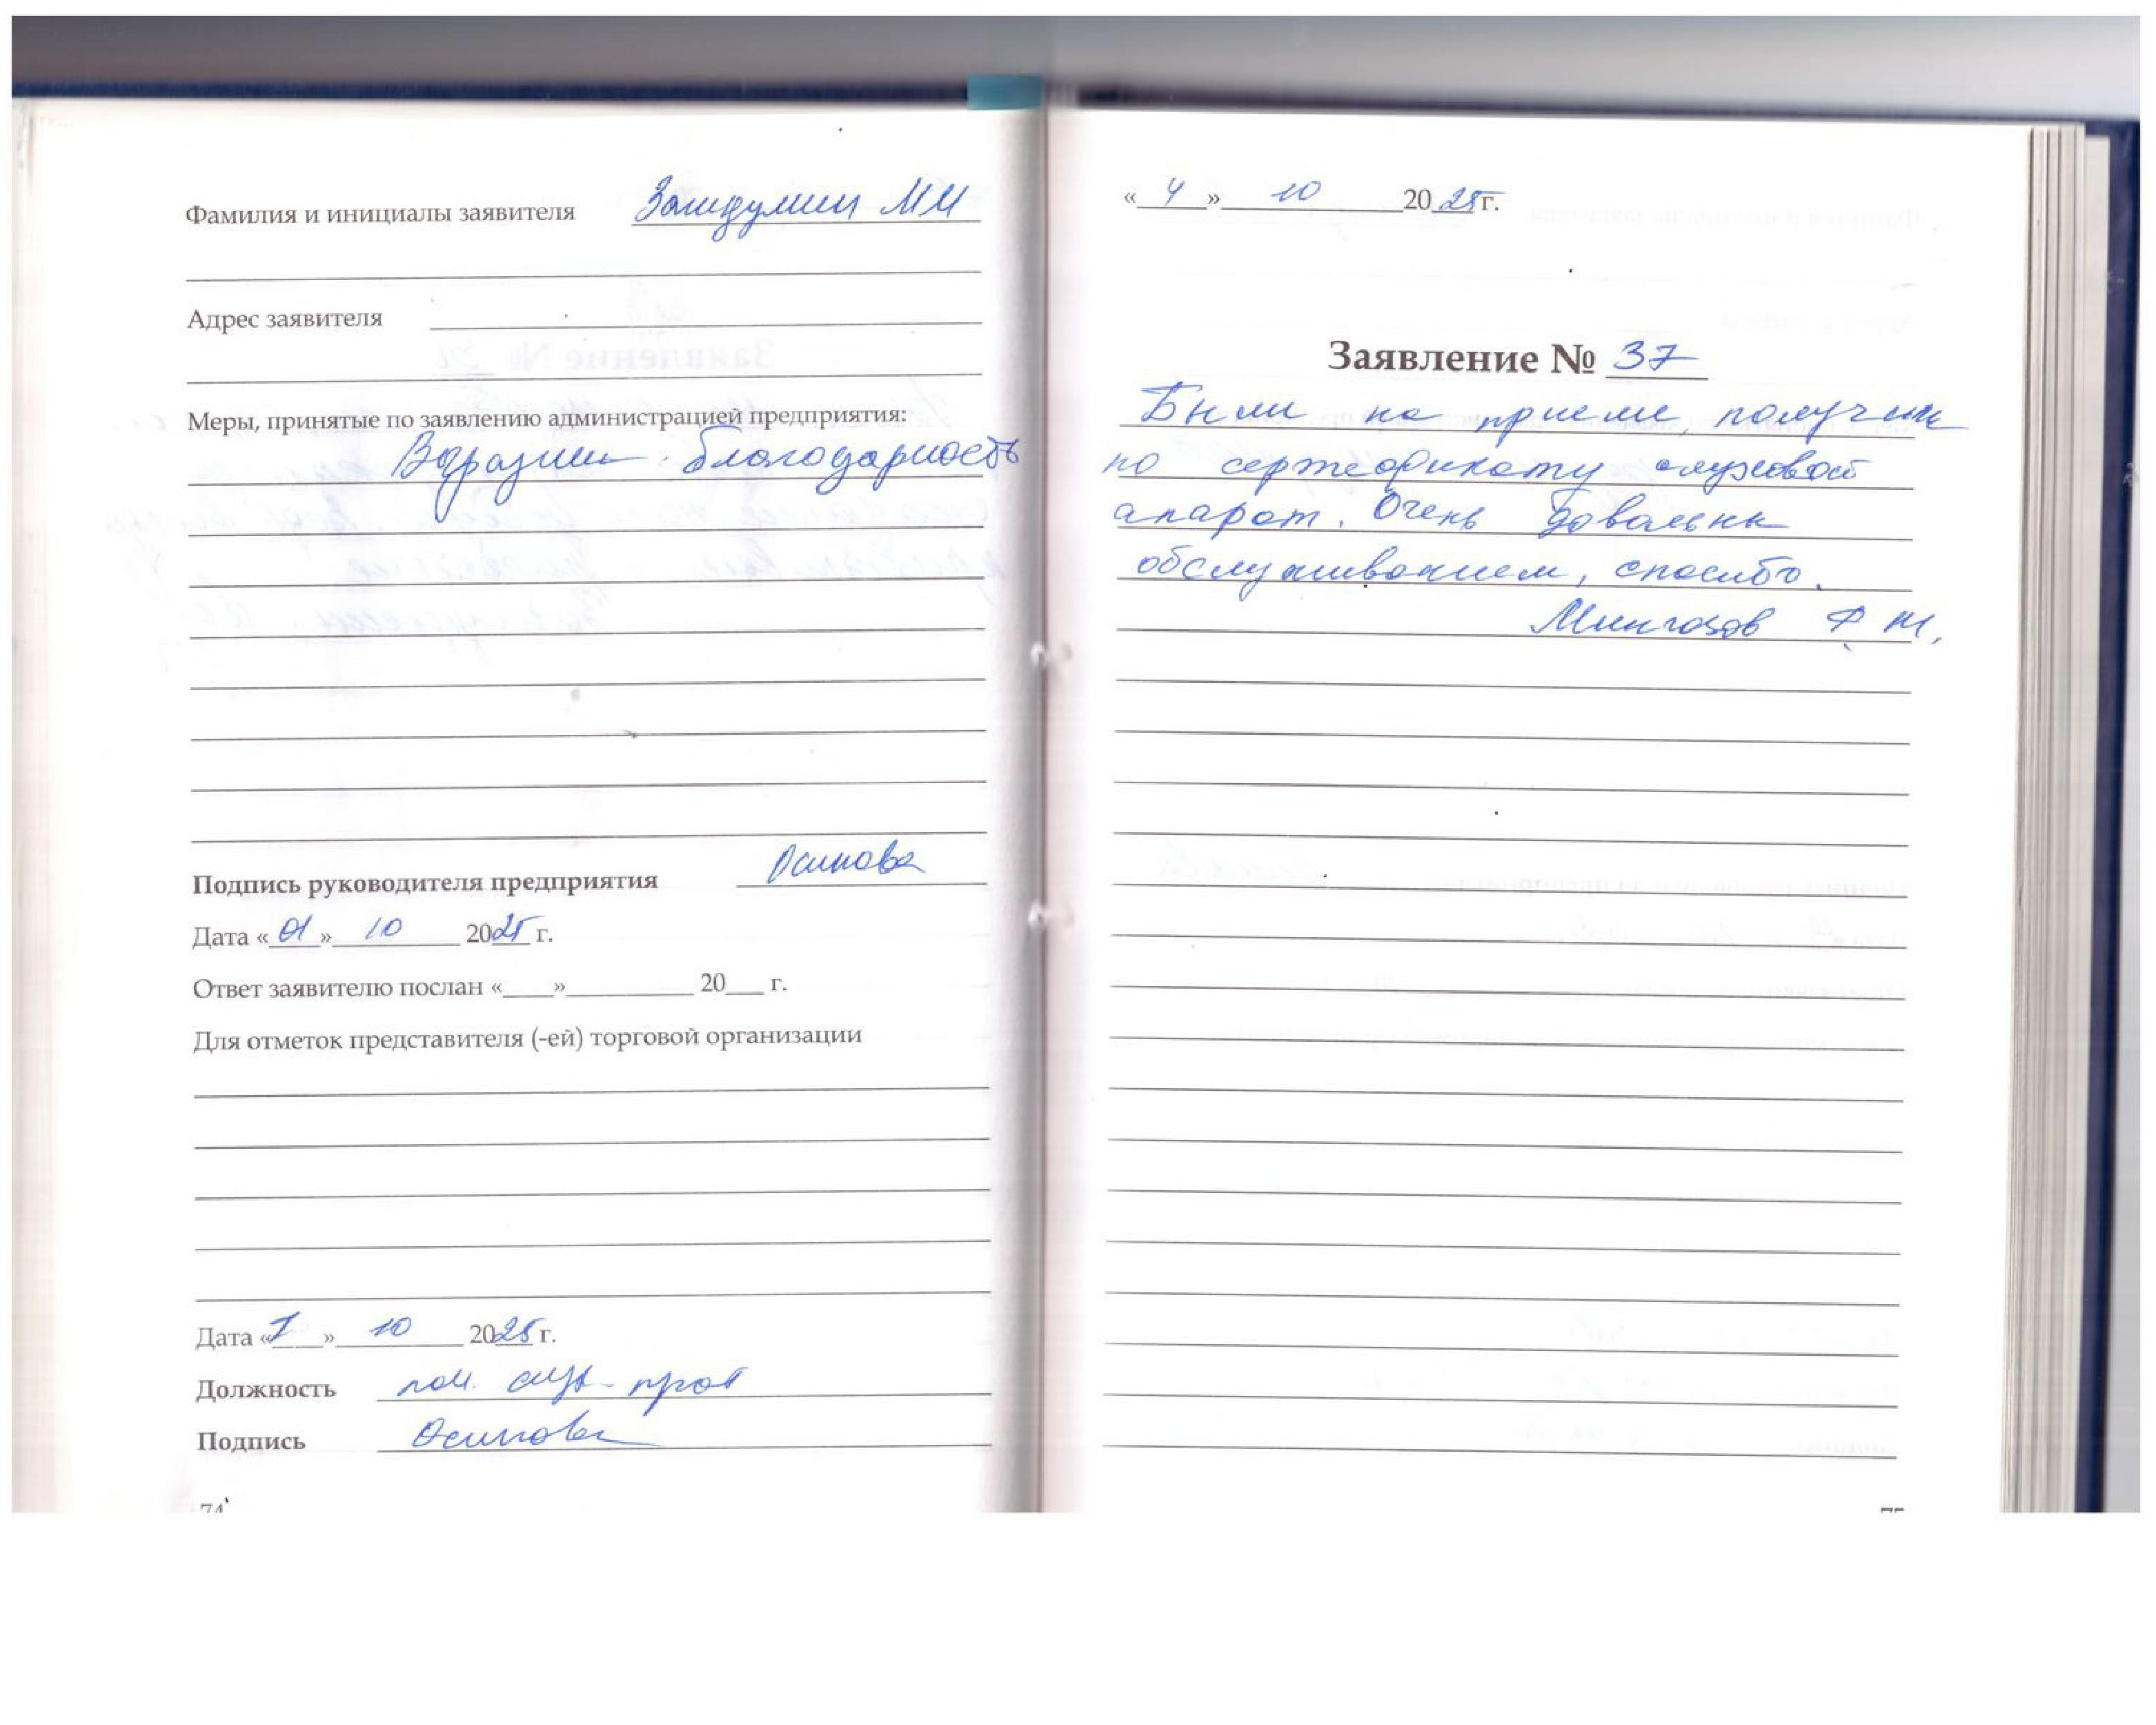 Фамилия и инициалы заявителя ММ
Адрес заявителя
Меры, принятые по заявлению администрацией предприятия:
Выразили благодарность
Подпись руководителя предприятия Осипова
Дата «01» 10 2025 г.
Ответ заявителю послан «___»__________ 20___ г.
Для отметок представителя (-ей) торговой организации
Дата «1» 10 2025 г.
Должность пом. сур-прот
Подпись Осипова
74
«4» 10 2025 г.
Заявление № 37
Были на приеме, получили
по сертефикату слуховой
апарат. Очень довальны
обслуживанием, спасибо.
Мингазов Ф М,
75